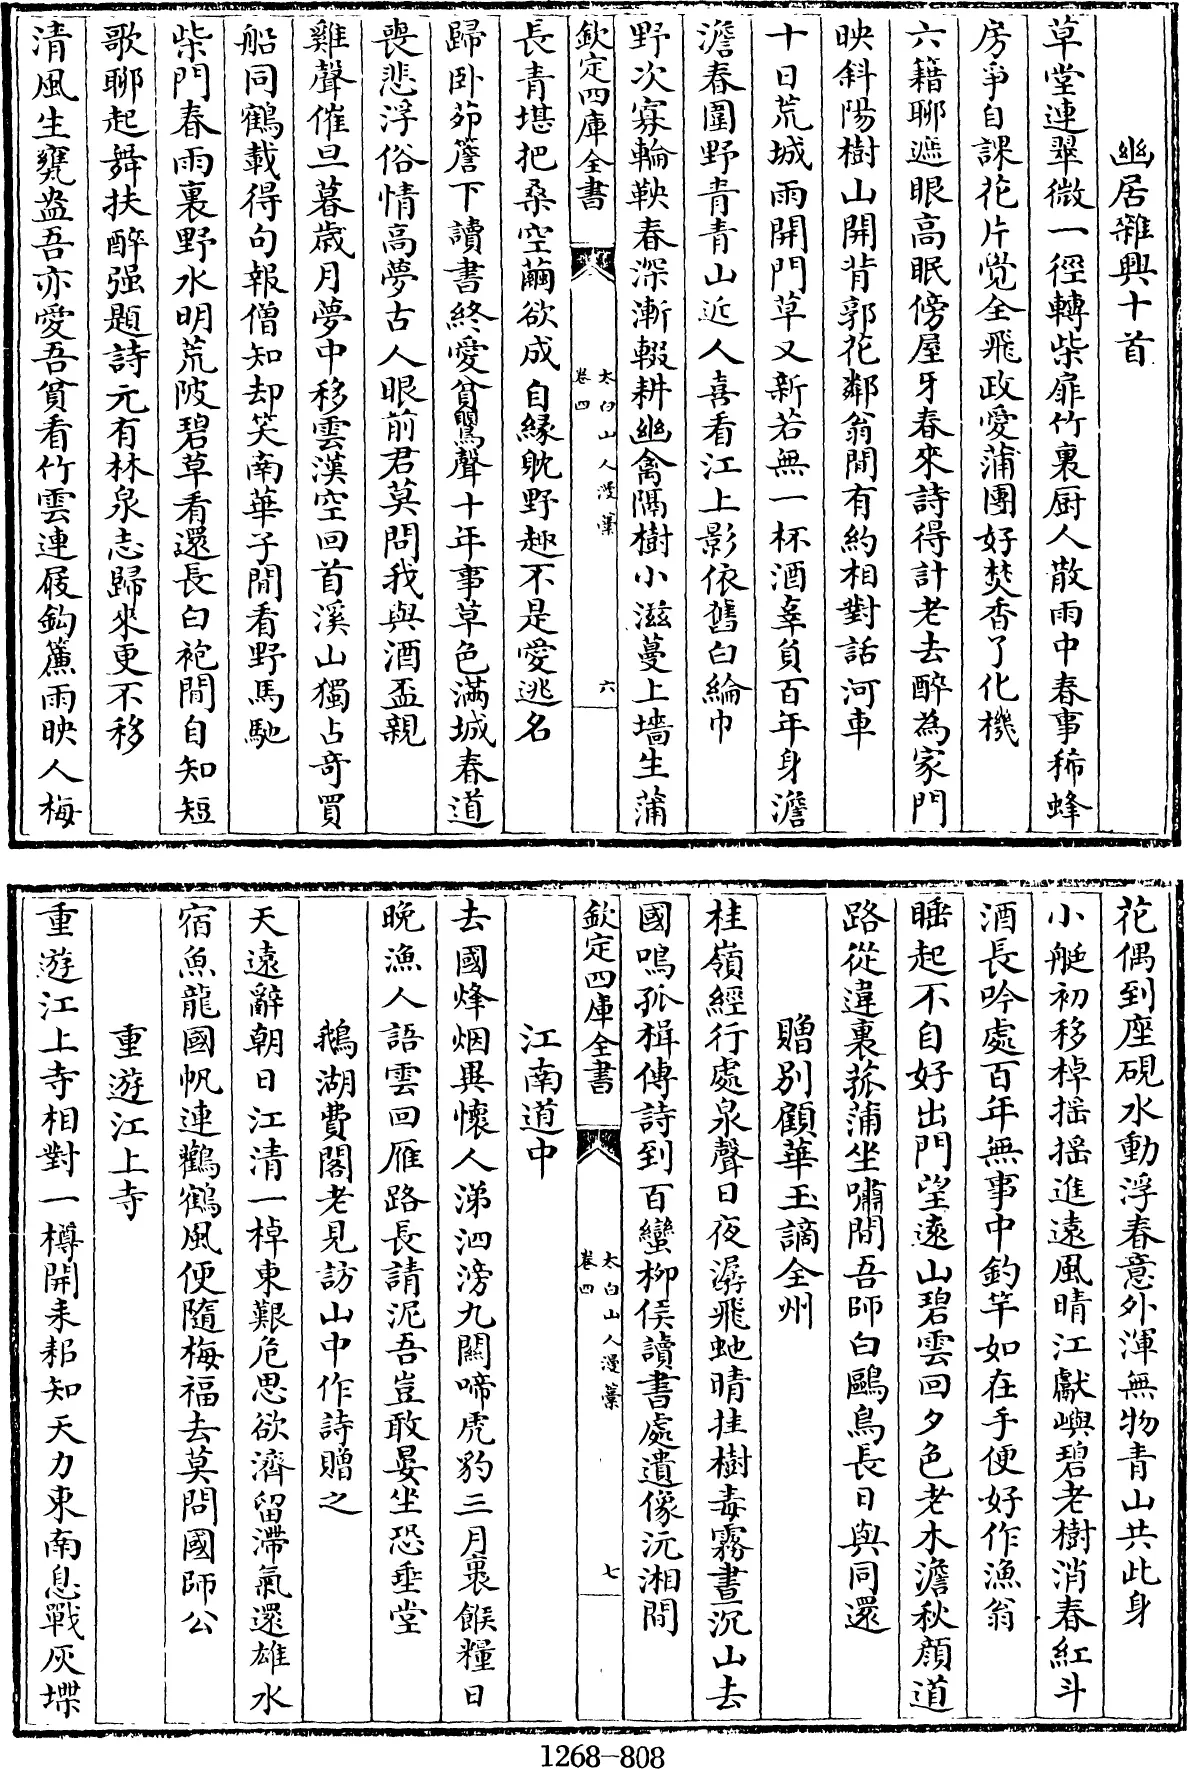 幽居雜興十首
草堂連翠微一徑轉柴扉竹裏厨人散雨中春事稀蜂
房爭自課花片覺全飛政愛蒲團好焚香了化機
六籍聊遮眼高眠傍屋牙春來詩得計老去醉為家門
映斜陽樹山開背郭花鄰翁閒有約相對話河車
十日荒城雨開門草又新若無一杯酒辜負百年身澹
澹春圍野青青山近人喜看江上影依舊白綸巾
野次寡輪鞅春深漸輟耕幽禽隔樹小滋蔓上墻生蒲
欽定四庫全書
太白山人漫藁
卷四
六
長青堪把桑空繭欲成自緣躭野趣不是愛逃名
歸卧茆簷下讀書終愛貧鶯聲十年事草色滿城春道
喪悲浮俗情高夢古人眼前君莫問我與酒盃親
雞聲催旦暮歲月夢中移雲漢空回首溪山獨占奇買
船同鶴載得句報僧知却笑南華子閒看野馬馳
柴門春雨裏野水明荒陂碧草看還長白袍閒自知短
歌聊起舞扶醉强題詩元有林泉志歸來更不移
清風生甕盎吾亦愛吾貧看竹雲連屐鈎簾雨映人梅
花偶到座硯水動浮春意外渾無物青山共此身
小艇初移棹揺揺進遠風晴江獻嶼碧老樹消春紅斗
酒長吟處百年無事中釣竿如在手便好作漁翁
睡起不自好出門望遠山碧雲回夕色老木澹秋顔道
路從違裏菰蒲坐嘯間吾師白鷗鳥長日與同還
贈别顧華玉謫全州
桂嶺經行處泉聲日夜潺飛虵晴挂樹毒霧晝沉山去
國鳴孤楫傳詩到百蠻柳侯讀書處遺像沅湘間
欽定四庫全書
太白山人漫藁
卷四
七
江南道中
去國烽烟異懷人涕泗滂九闗啼虎豹三月裹餱糧日
晚漁人語雲回雁路長請泥吾豈敢晏坐恐垂堂
鵝湖費閣老見訪山中作詩贈之
天遠辭朝日江清一棹東艱危思欲濟留滯氣還雄水
宿魚龍國帆連鸛鶴風便隨梅福去莫問國師公
重遊江上寺
重遊江上寺相對一樽開耒耜知天力東南息戰灰堞
1268-808